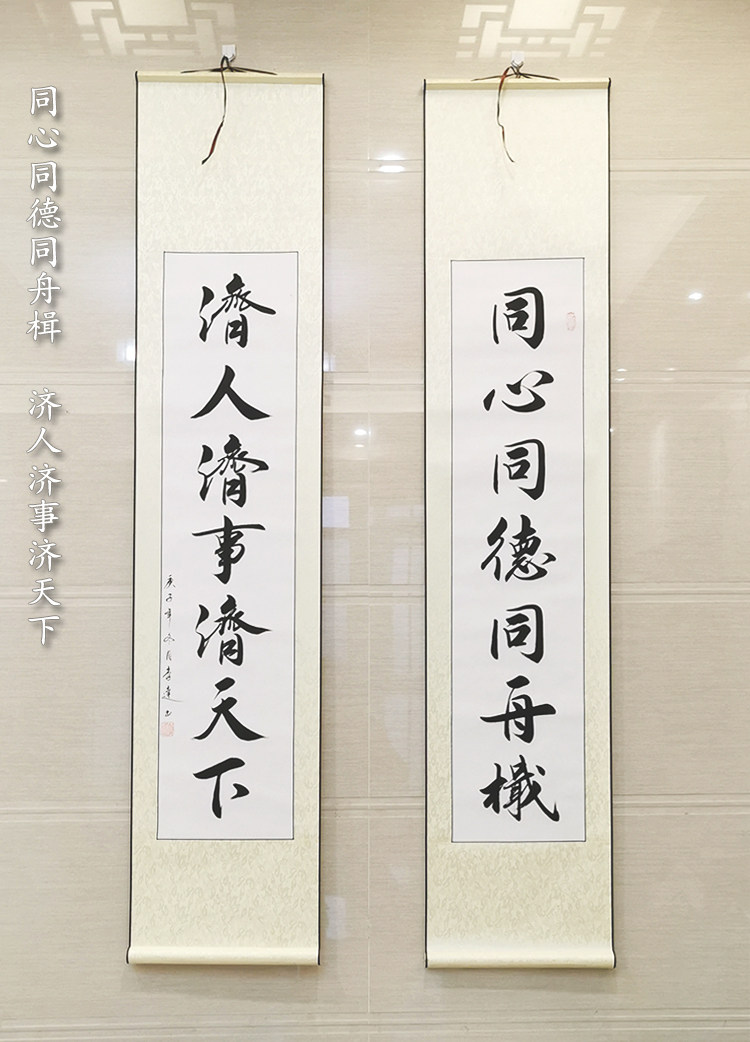 同心同德同舟檝
濟人濟事濟天下
庚子年冬月
同心同德同舟楫
济人济事济天下